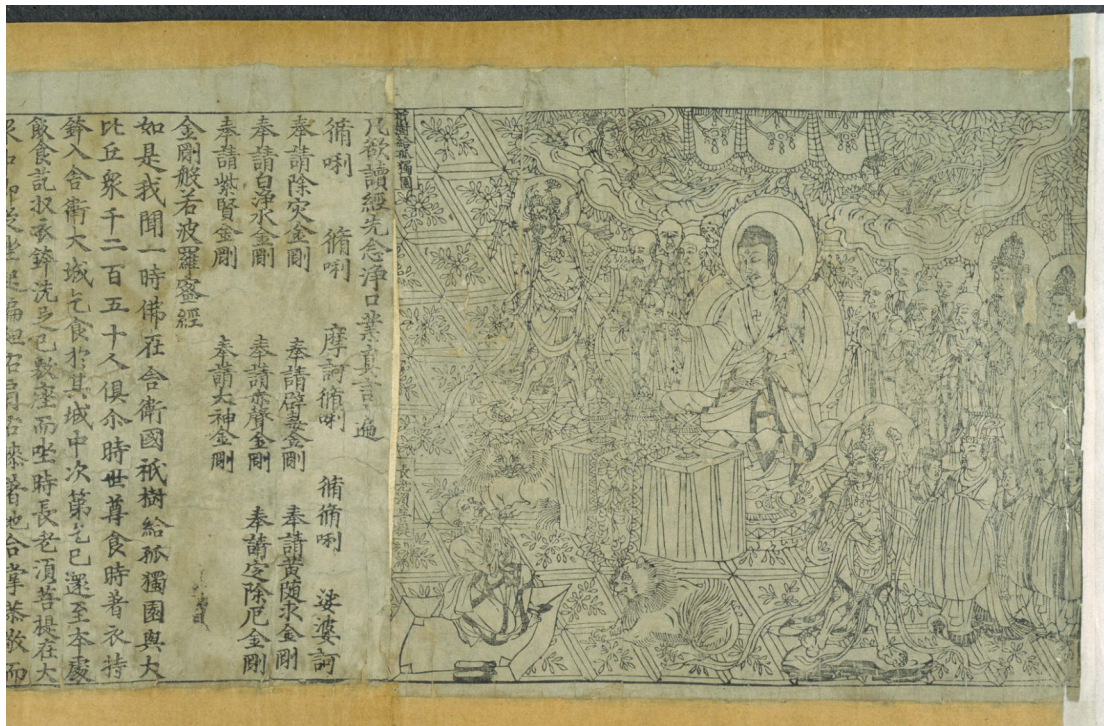 祇樹給孤獨園
長老須菩提
凡欲讀經先念淨口業真言 遍
脩唎 脩唎 摩訶脩唎 脩脩唎 娑婆訶
奉請除灾金剛 奉請辟毒金剛 奉請黃随求金剛
奉請白淨水金剛 奉請赤聲金剛 奉請定除厄金剛
奉請紫賢金剛 奉請大神金剛
金剛般若波羅蜜經
如是我聞一時佛在舍衛國祇樹給孤獨園與大
比丘衆千二百五十人俱尒時世尊食時著衣持
鉢入舍衛大城乞食於其城中次第乞已還至本處
飯食訖收衣鉢洗足已敷座而坐時長老須菩提在大
右膝著地合掌恭敬而